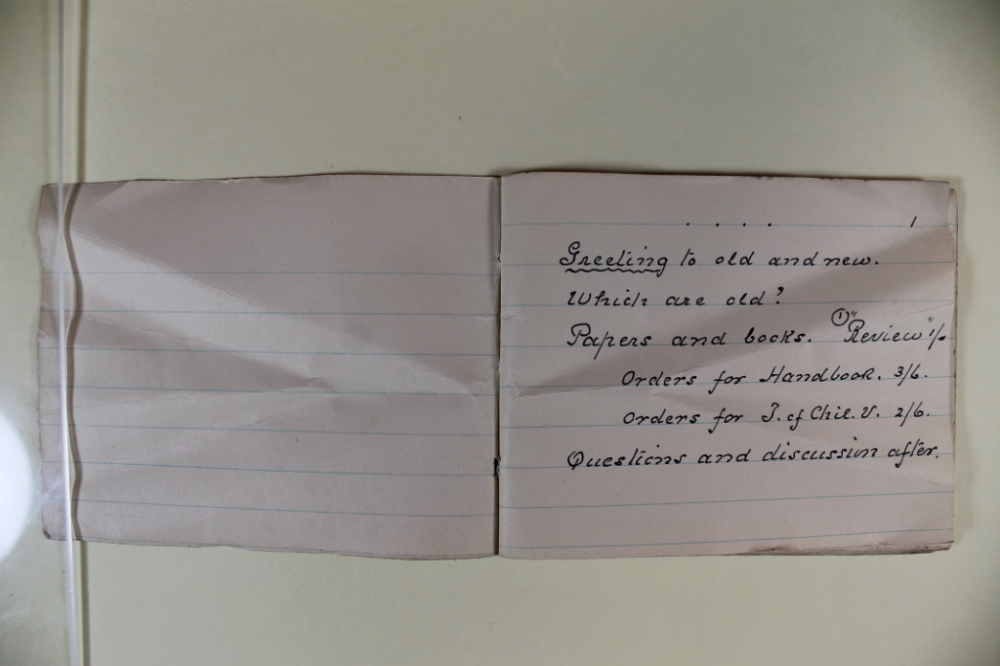 . . . . 1
Greeting to old and new.
Which are old?
Papers and books. ① "Review" 1/-
Orders for Handbook. 3/6.
Orders for T. of Chil. V. 2/6.
Questions and discussion after.